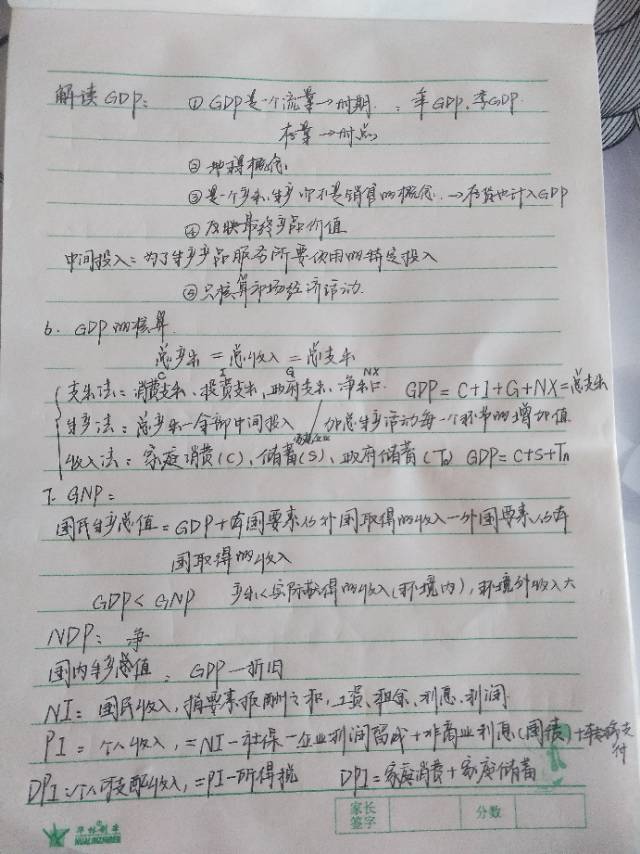 解读GDP: ①GDP是一个流量→时期. : 年GDP,季GDP
存量→时点
②地得概念
③是一个产出、生产而不是销售的概念.→存货也计入GDP
④反映最终产品价值
中间投入:为了生产产品服务所要使用的特定投入
⑤只核算市场经济活动
6. GDP的核算
总产出=总收入=总支出
C I G NX
支出法:消费支出、投资支出、政府支出、净出口. GDP=C+I+G+NX=总支出
生产法:总产出-全部中间投入/加总生产活动每一个环节的增加值
收入法:家庭消费(C)、储蓄(S)、政府储蓄(Tn) GDP=C+S+Tn
7. GNP:
国民生产总值=GDP+本国要素从外国取得的收入-外国要素从本
国取得的收入
GDP<GNP 产出<实际获得的收入(环境内),环境外收入大
NDP: 净
国内生产总值: GDP-折旧
NI:国民收入,指要素报酬之和,工资、租金、利息、利润
PI:个人收入,=NI-社保-企业利润留成+非商业利息(国债)+转移支
付
DPI:个人可支配收入,=PI-所得税 DPI=家庭消费+家庭储蓄
家长
签字
分数
华林制本
HUALINZHIBEN